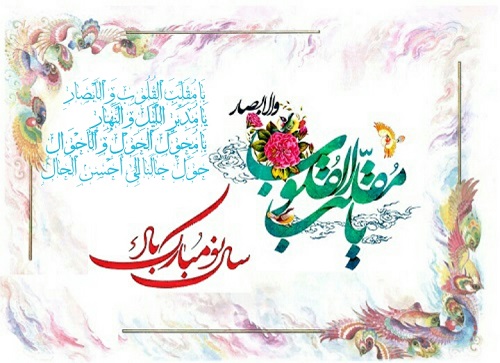 یا مُقَلِّبَ القُلُوبِ وَ الاَبصارِ
یا مُدَبِّرَ اللَّیلِ وَ النَّهارِ
یا مُحَوِّلَ الحَولِ وَ الاَحوالِ
حَوِّل حالَنا اِلی اَحسَنِ الحالِ
یا مقلب القلوب
والابصار
سال نو مبارک باد